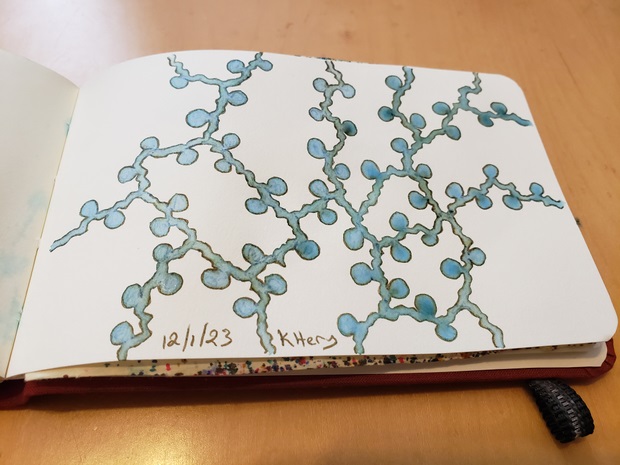 12/1/23 KHery